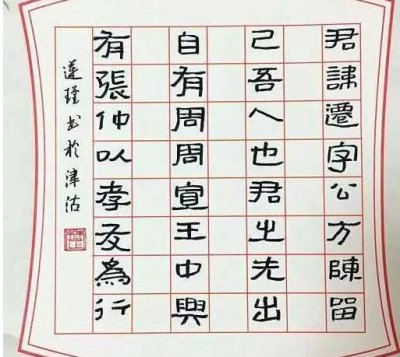 君諱遷字公方陳留
己吾人也君之先出
自有周周宣王中興
有張仲以孝友為行
蓮瑾書於津沽